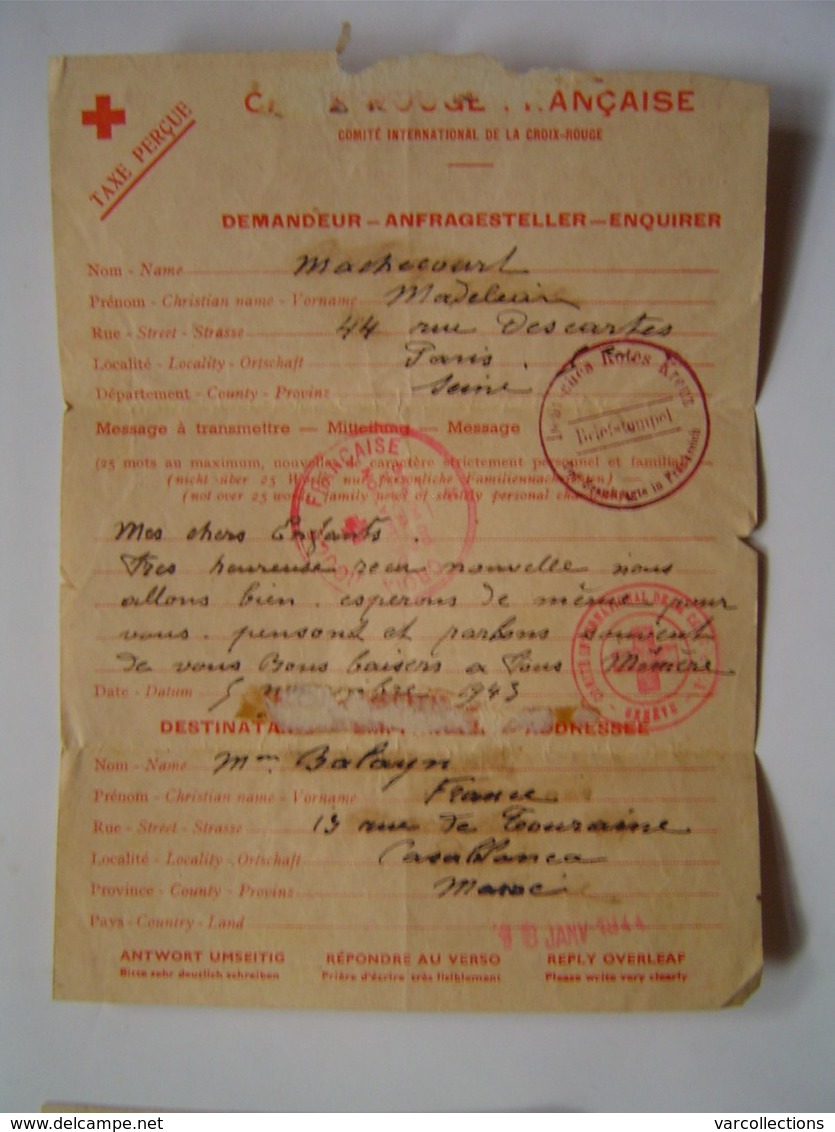 ROUGE FRANÇAISE
COMITÉ INTERNATIONAL DE LA CROIX-ROUGE
TAXE PERÇUE
DEMANDEUR — ANFRAGESTELLER — ENQUIRER
Nom - Name Machecourt
Prénom - Christian name - Vorname Madeleine
Rue - Street - Strasse 44 rue Descartes
Localité - Locality - Ortschaft Paris.
Département - County - Provinz Seine
Message à transmettre — Mitteilung — Message
(25 mots au maximum, nouvelles de caractère strictement personnel et familial)
(nicht über 25 Worte, nur persönliche Familiennachrichten)
(not over 25 words, family news of strictly personal character)
Rotes Kreuz
Briefstempel
in Frankreich
FRANÇAISE
Mes chers Enfants.
Tres heureuse recu nouvelle nous
allons bien. esperons de même pour
vous. pensond et parlons souvent
de vous Bons baisers a Tous Mémère
COMITÉ INTERNATIONAL DE LA
GENÈVE
Date - Datum 5 novembre 1943
DESTINATA ADDRESSEE
Nom - Name Mme Balayn
Prénom - Christian name - Vorname France
Rue - Street - Strasse 13 rue de Touraine
Localité - Locality - Ortschaft Casablanca
Province - County - Provinz Maroc
Pays - Country - Land
JANV 1944
ANTWORT UMSEITIG RÉPONDRE AU VERSO REPLY OVERLEAF
Bitte sehr deutlich schreiben Prière d'écrire très lisiblement Please write very clearly
delcampe.net varcollections